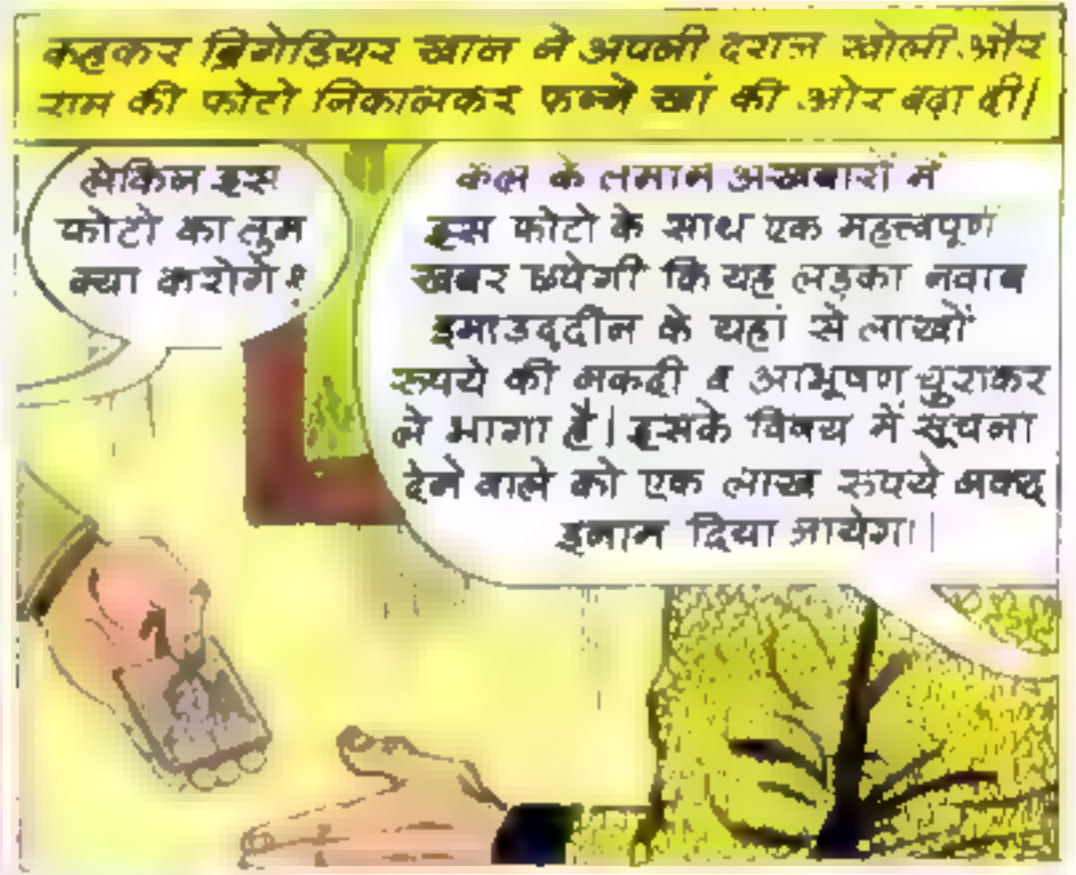 कहकर ब्रिगेडियर खान ने अपनी दराज खोली और
राम की फोटो निकालकर फन्ने खां की ओर बढ़ा दी|
लेकिन इस
फोटो का तुम
क्या करोगे?
कल के तमाम अखबारों में
इस फोटो के साथ एक महत्त्वपूर्ण
खबर छपेगी कि यह लड़का नवाब
इमाउद्दीन के यहां से लाखों
रूपये की नकदी व आभूषण चुराकर
ले भागा है| इसके विषय में सूचना
देने वाले को एक लाख रूपये नकद
इनाम दिया जायेगा|